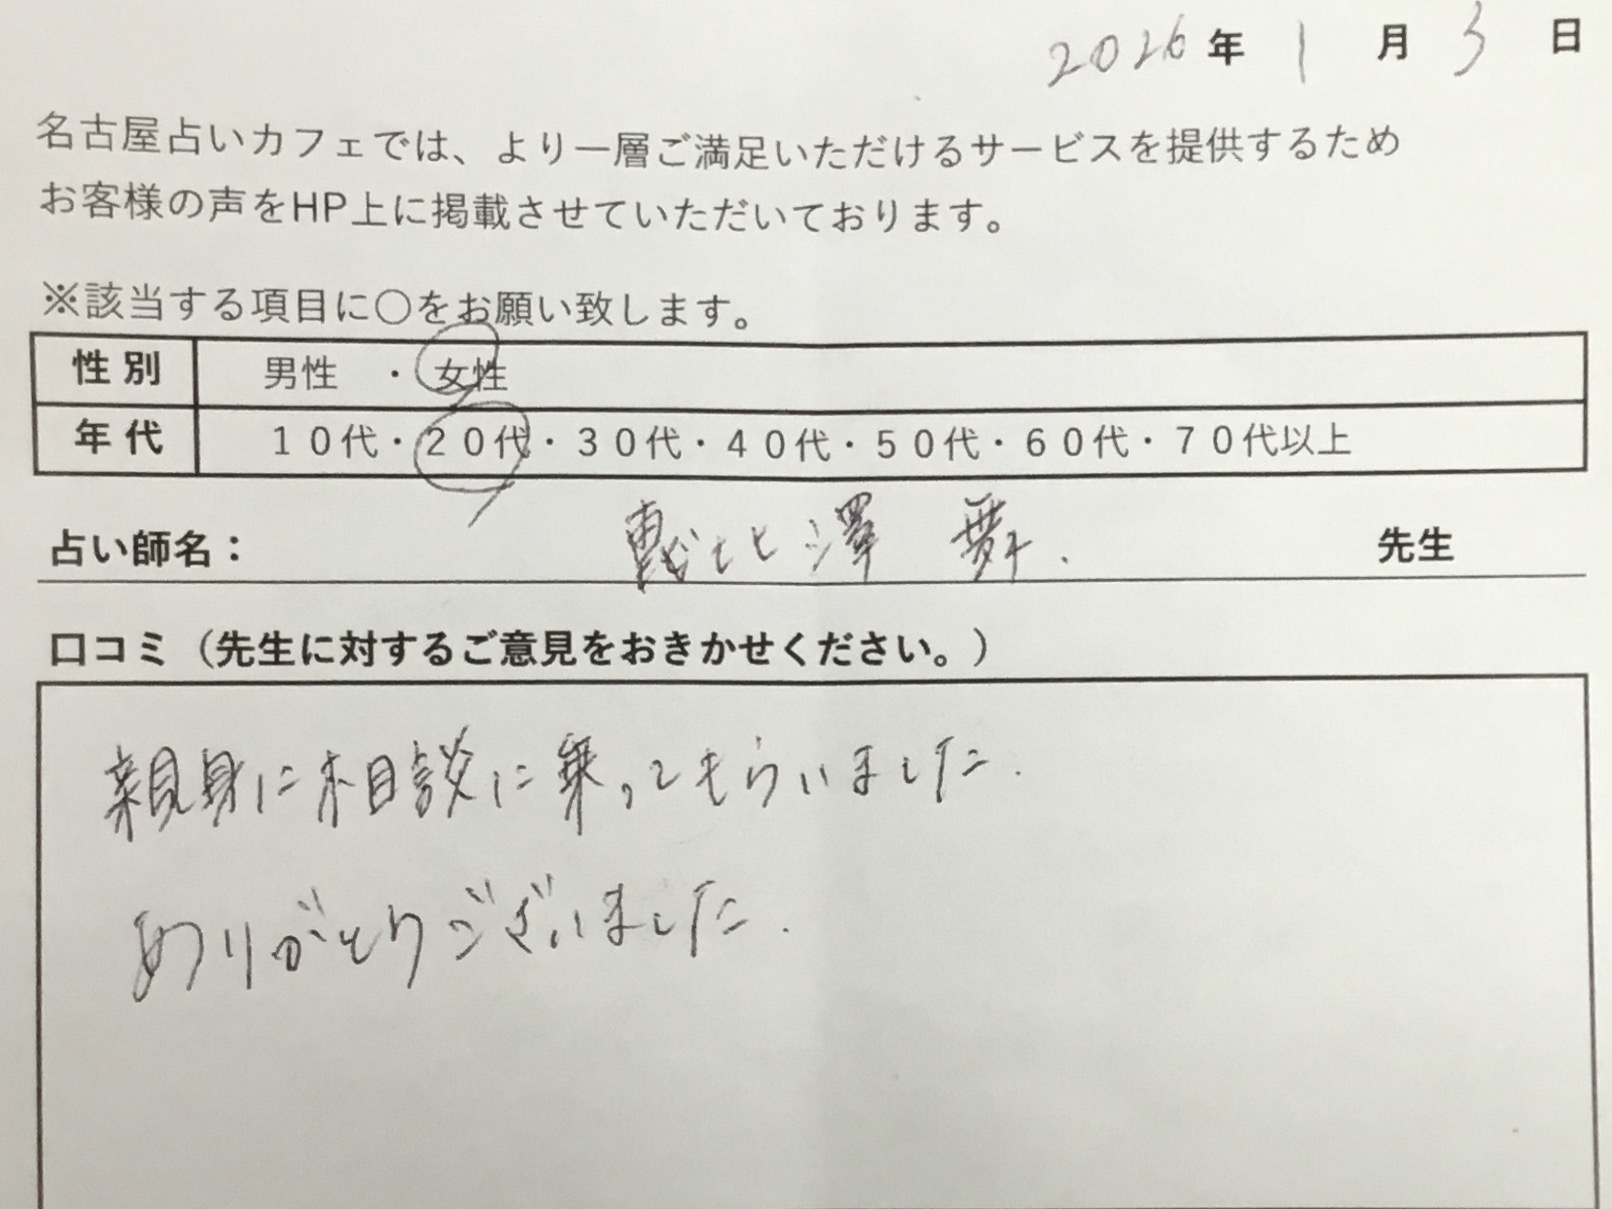 2026年 1月 3日
名古屋占いカフェでは、より一層ご満足いただけるサービスを提供するため
お客様の声をHP上に掲載させていただいております。
※該当する項目に〇をお願い致します。
性別 男性 ・ 女性
年代 １０代・２０代・３０代・４０代・５０代・６０代・７０代以上
占い師名： 恵比澤 舞. 先生
口コミ（先生に対するご意見をおきかせください。）
親身に相談に乗ってもらいました.
ありがとうございました.